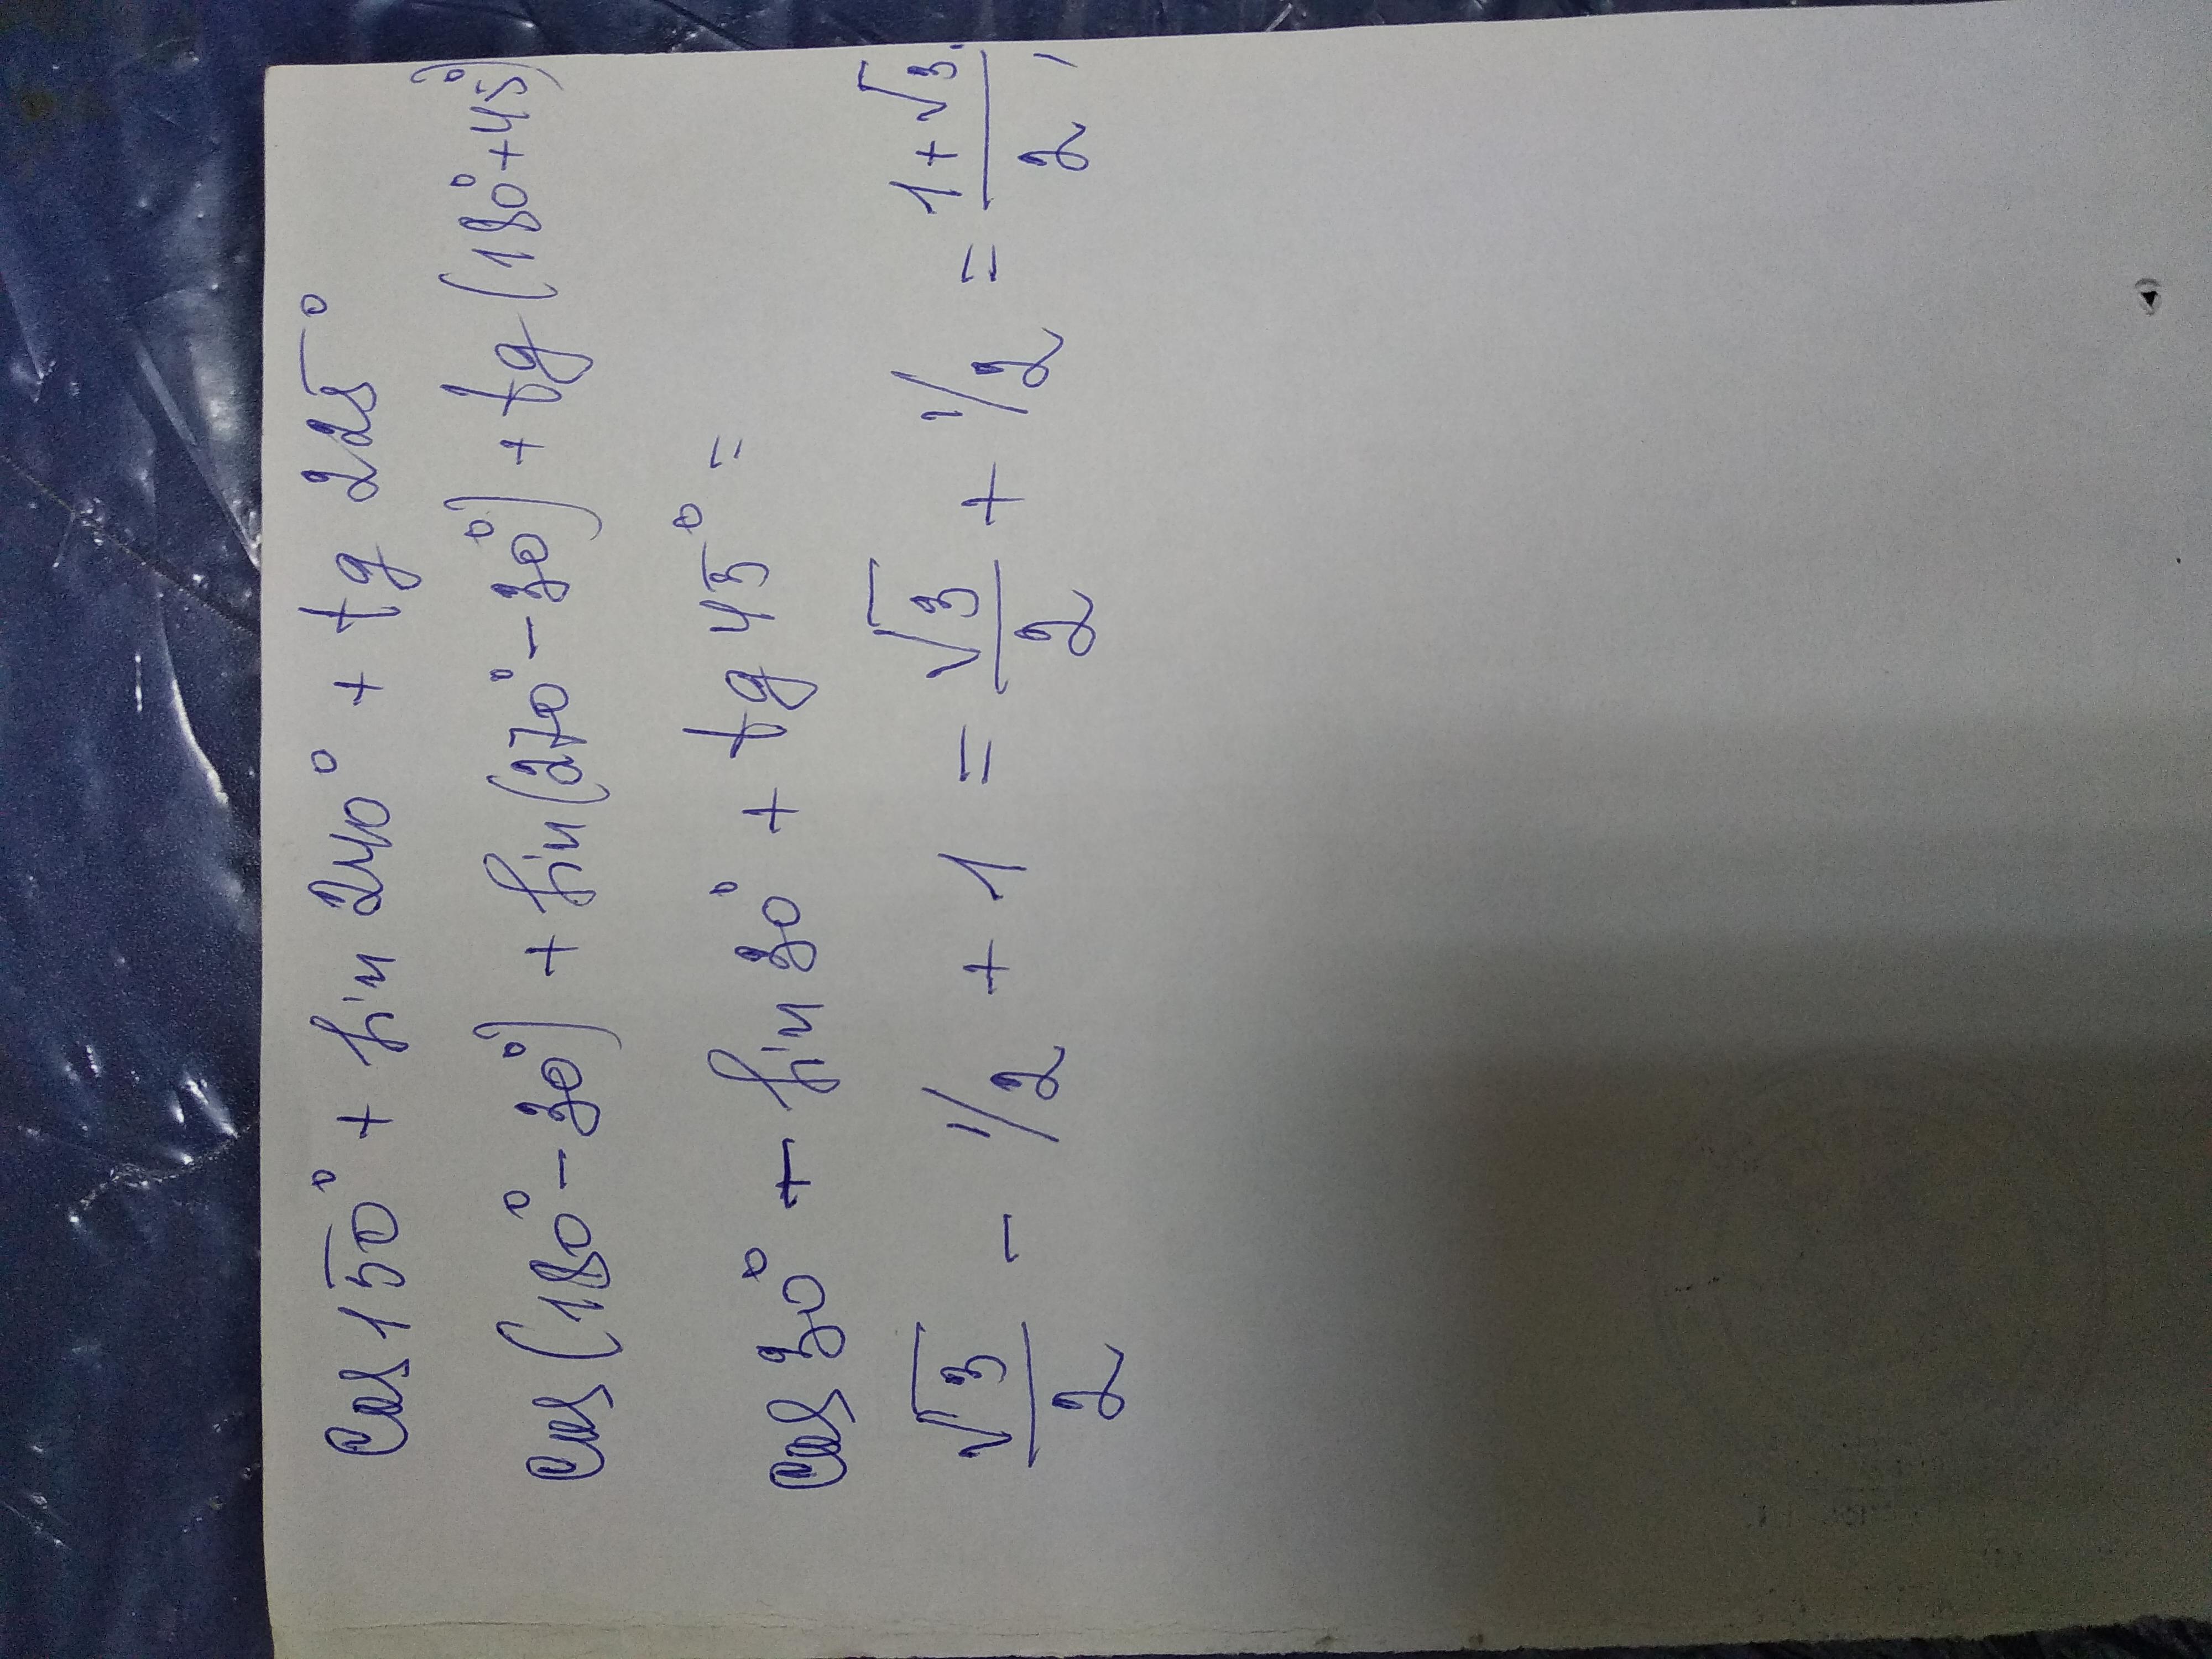 cos 150° + sin 240° + tg 225°
cos (180° - 30°) + sin (270° - 30°) + tg (180° + 45°)
cos 30° + sin 30° + tg 45° =
√3/2 - 1/2 + 1 = √3/2 + 1/2 = 1+√3/2,